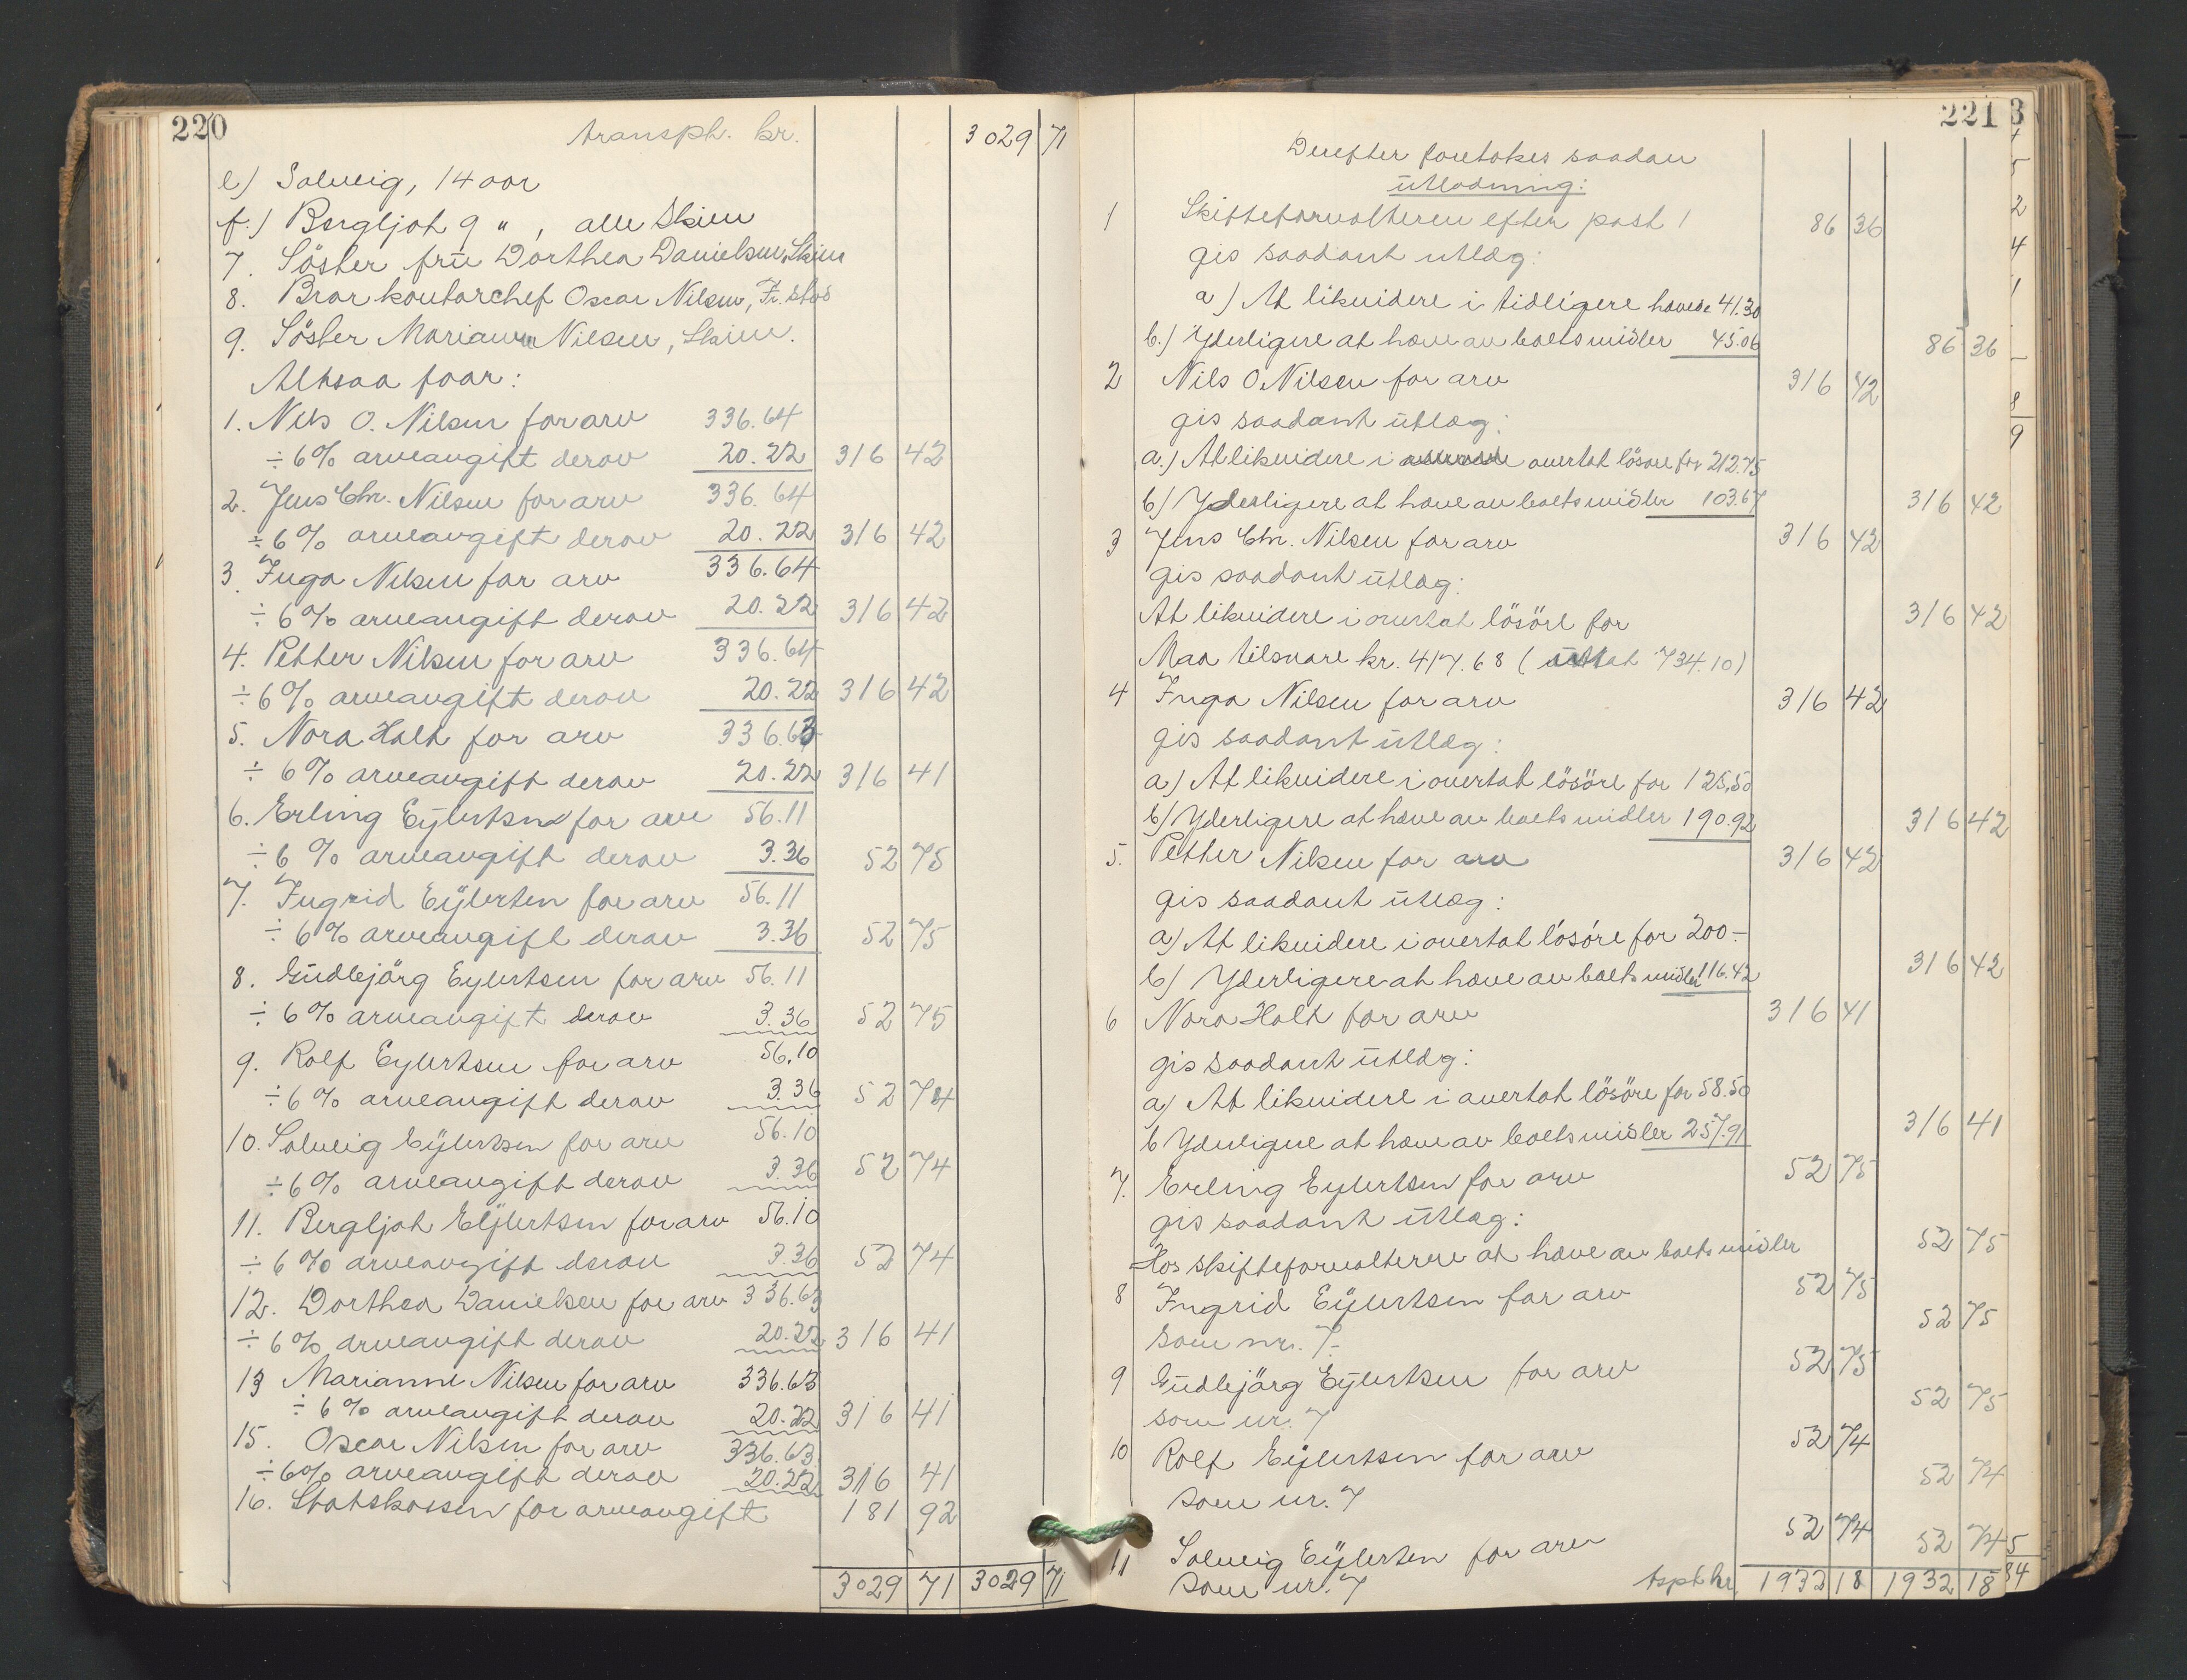 220
transpt. kr. 3029 71
e) Solveig, 14 aar
f.) Bergljot 9 " , alle Skien
7. Söster frü Dorthea Danielsen, Skien
8. Bror kontorchef Oscar Nilsen,
9. Söster Marianne Nilsen, Skien.
Altsaa faar:
1. Nils O. Nilsen for arv 336.64
÷ 6% arveavgift derav 20.22 316 42
2. Jens Chr. Nilsen for arv 336.64
÷ 6% arveavgift derav 20.22 316 42
3. Inga Nilsen for arv 336.64
÷ 6% arveavgift derav 20.22 316 42
4. Petter Nilsen for arv 336.64
÷ 6% arveavgift derav 20.22 316 42
5. Nora Holt for arv 336.63
÷ 6% arveavgift derav 20.22 316 41
6. Erling Eÿlertsen for arv 56.11
÷ 6% arveavgift derav 3.36 52 75
7. Ingrid Eÿlertsen for arv 56.11
÷ 6% arveavgift derav 3.36 52 75
8. Güdbjörg Eylertsen for arv 56.11
÷ 6% arveavgift derav 3.36 52 75
9. Rolf Eylertsen for arv 56.10
÷ 6% arveavgift derav 3.36 52 74
10. Solveig Eÿlertsen for arv 56.10
÷ 6% arveavgift derav 3.36 52 74
11. Bergljot Eÿlertsen for arv 56.10
÷ 6% arveavgift derav 3.36 52 74
12. Dorthea Danielsen for arv 336.63
÷ 6% arveavgift derav 20.22 316 41
13 Marianne Nilsen for arv 336.63
÷ 6% arveavgift derav 20.22 316 41
15. Oscar Nilsen for arv 336.63
÷ 6% arveavgift derav 20.22 316 41
16. Statskassen for arveavgift 181 92
3029 71 3029 71
221
Derefter foretokes saadan
ütlodning:
1 Skifteforvalteren efter post 1 86 36
gis saadant utlæg:
a) At likvidere i tidligere hævede 41.30
b.) Yderligere at hæve av boets midler 45.06 86 36
2 Nils O. Nilsen for arv 316 42
gis saadant ütlæg:
a.) At likvidere i overtat lösöre for 212.75
b) Yderligere at hæve av boets midler 103.67 316 42
3 Jens Chr. Nilsen for arv 316 42
gis saadant ütlæg:
At likvidere i overtat lösöre for 316 42
Maa tilsvare kr. 417.68 ( 734.10)
4 Inga Nilsen for arv 316 42
gis saadant ütlæg:
a) At likvidere i overtat lösöre for 125,50
b) Yderligere at hæve av boets midler 190.92 316 42
5. Petter Nilsen for arv 316 42
gis saadant ütlæg:
a) At likvidere i overtat lösöre for 200.-
b) Yderligere at hæve av boets midler 116.42 316 42
6 Nora Holt for arv 316 41
gis saadant ütlæg:
a) At likvidere i overtat lösöre for 58.50
b Yderligere at hæve av boets midler 257.91 316 41
7. Erling Eylertsen for arv 52 75
gis saadant ütlæg:
Hos skifteforvalteren at hæve av boets midler 52 75
8 Ingrid Eÿlertsen for arv 52 75
som nr. 7.- 52 75
9 Güdbjörg Eÿlertsen for arv 52 75
som nr. 7 52 75
10 Rolf Eÿlertsen for arv 52 74
som nr. 7 52 74
11 Solveig Eÿlertsen for arv 52 74
som nr. 7 52 74
tspt kr. 1932 18 1932 18